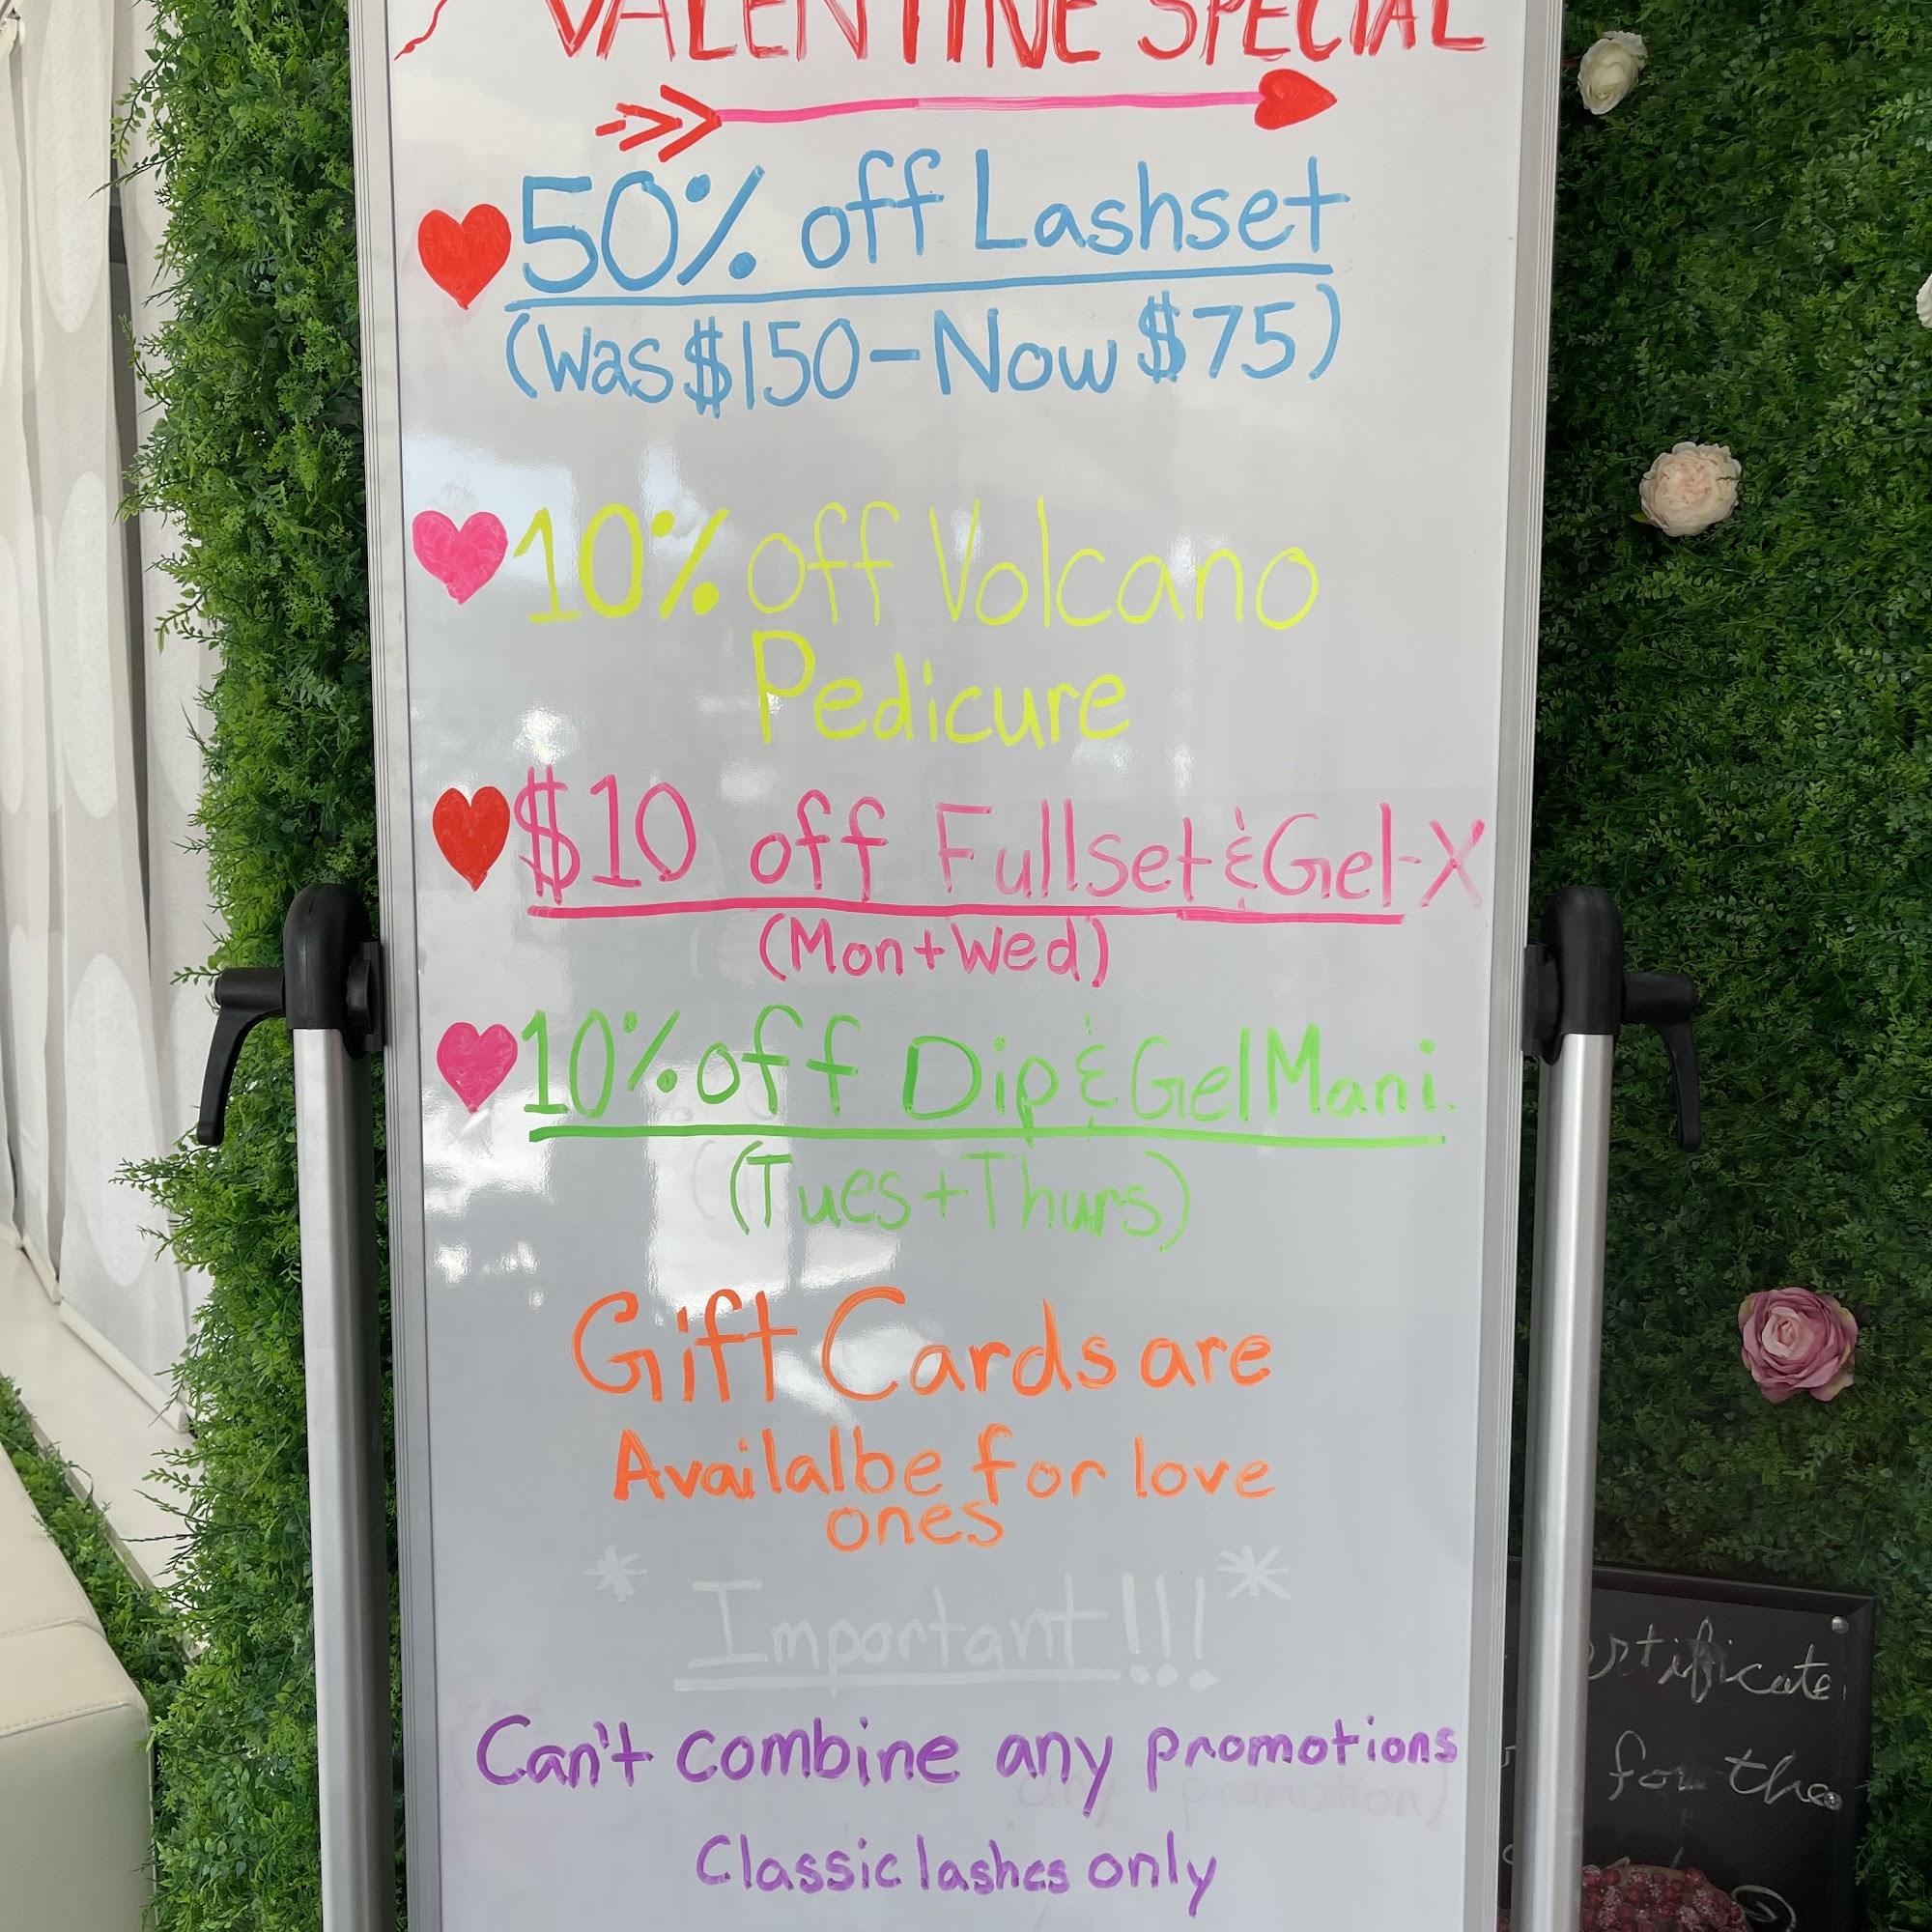 VALENTINE SPECIAL
50% off Lashset
(Was $150-Now $75)
10% off Volcano
Pedicure
$10 off Fullset & Gel-X
(Mon+Wed)
10% off Dip & Gel Mani.
(Tues+Thurs)
Gift Cards are
Availalbe for love
ones
* Important!!! *
Can't combine any promotions
any promotion)
Classic lashes only
for the